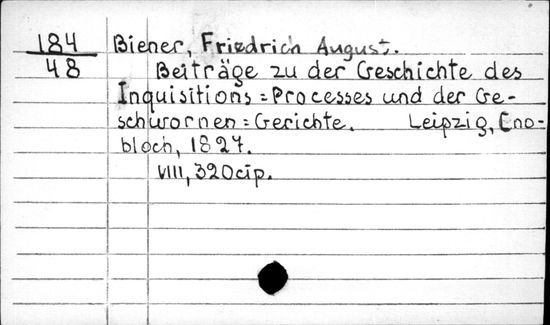 184 Biener, Friedrich August.
48 Beiträge zu der Geschichte des
Inquisitions=Processes und der Ge-
schwornen=Gerichte. Leipzig, Cno-
bloch, 1827.
VIII, 320 cip.